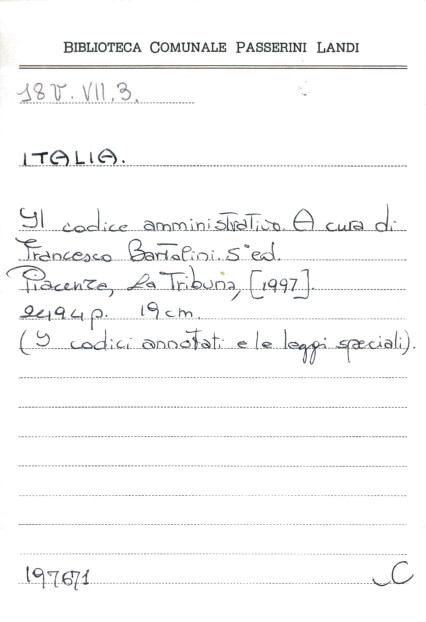 BIBLIOTECA COMUNALE PASSERINI LANDI
18 V. VII. 3.
ITALIA.
Il codice amministrativo. A cura di
Francesco Bartolini. 5ª ed.
Piacenza, La Tribuna, [1997].
2494 p. 19 cm.
(I codici annotati e le leggi speciali).
197671